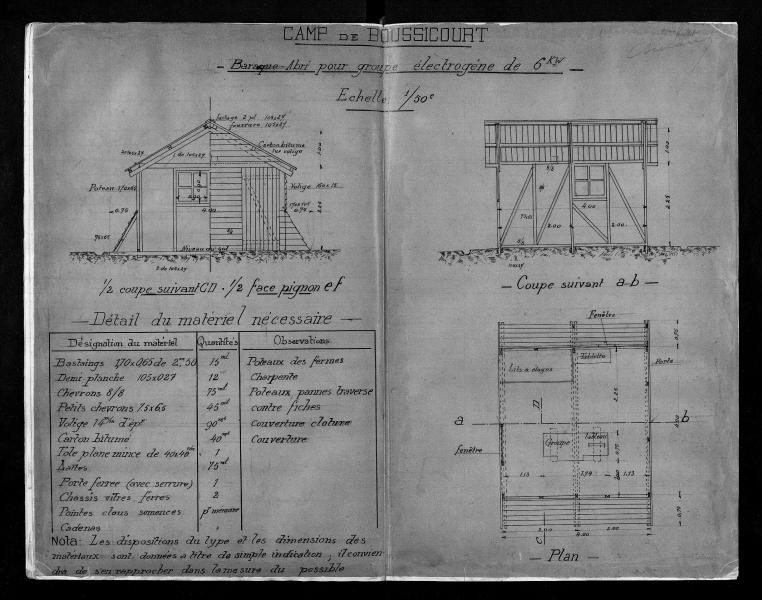 CAMP DE BOUSSICOURT
- Baraque-Abri pour groupe électrogène de 6 KW -
Echelle 1/50e
faitage 2 pl 105x27
fourrure 105x27
Carton bitumé
sur volige
1.00
Poteau 170x65
Volige
0.90
0.90
4.00
0.75
0.75
2.25
8/8
Niveau du sol
2 de 105x27
1/2 coupe suivant CD · 1/2 face pignon ef
1.00
8/8
4.00
2.00
2.00
2.25
8/8
- Coupe suivant ab -
- Détail du matériel nécessaire -
Désignation du matériel Quantités Observations
Bastaings 170x065 de 2m50 15 ml Poteaux des fermes
Demi planche 105x027 12 Charpente
Chevrons 8/8 75 ml Poteaux pannes traverse
Petits chevrons 75x65 45 ml contre fiches
Volige 14m/m d'épr 90 m² Couverture cloture
Carton bitumé 40 m² Couverture
Tole plane mince de 40x40 1
Lattes 75 ml
Porte ferrée (avec serrure) 1
Chassis vitres ferres 2
Pointes clous semences pr mémoire
Cadenas "
Nota: Les dispositions du type et les dimensions des
matériaux sont données a titre de simple indication, il convien
dra de s'en rapprocher dans la mesure du possible
Fenêtre
0.75
Tablette
Porte
Lits a étages
2.25
D
a
b
fenêtre
Groupe
Tableau
0.75
1.13
1.74
1.13
0.75
2.00
2.00
4.00
C
- Plan -